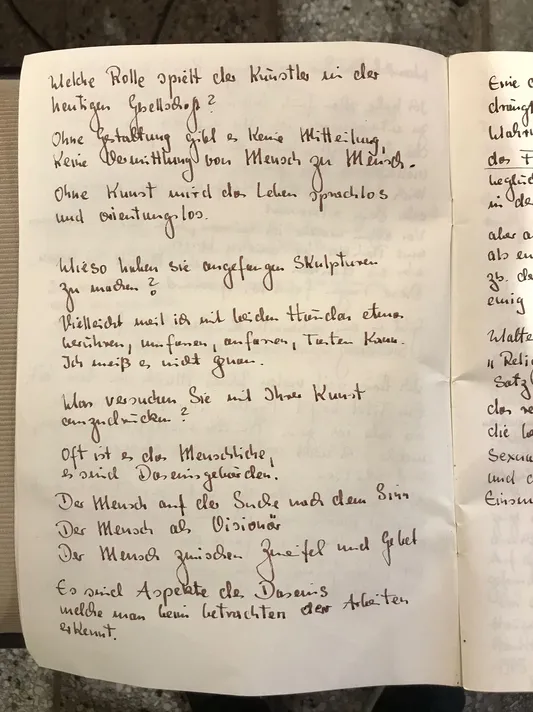 Welche Rolle spielt der Künstler in der
heutigen Gesellschaft?
Ohne Gestaltung gibt es keine Mitteilung,
Keine Vermittlung von Mensch zu Mensch.
Ohne Kunst wird das Leben sprachlos
und orientungslos.
Wieso haben sie angefangen Skulpturen
zu machen?
Vielleicht weil ich mit beiden Händen etwas
berühren, umfassen, anfassen, Tasten kann.
Ich weiß es nicht genau.
Was versuchen Sie mit Ihrer Kunst
auszudrücken?
Oft ist es das Menschliche,
es sind Daseinsgebärden.
Der Mensch auf der Suche nach dem Sinn
Der Mensch als Visionär
Der Mensch zwischen Zweifel und Gebet
Es sind Aspekte des Daseins
welche man beim betrachten der Arbeiten
erkennt.
Eine
drängt
das
in de
aber a
als en
zb. de
einig
Walte
„Reli
Satz
das re
die le
Sexu
und d
Einsm